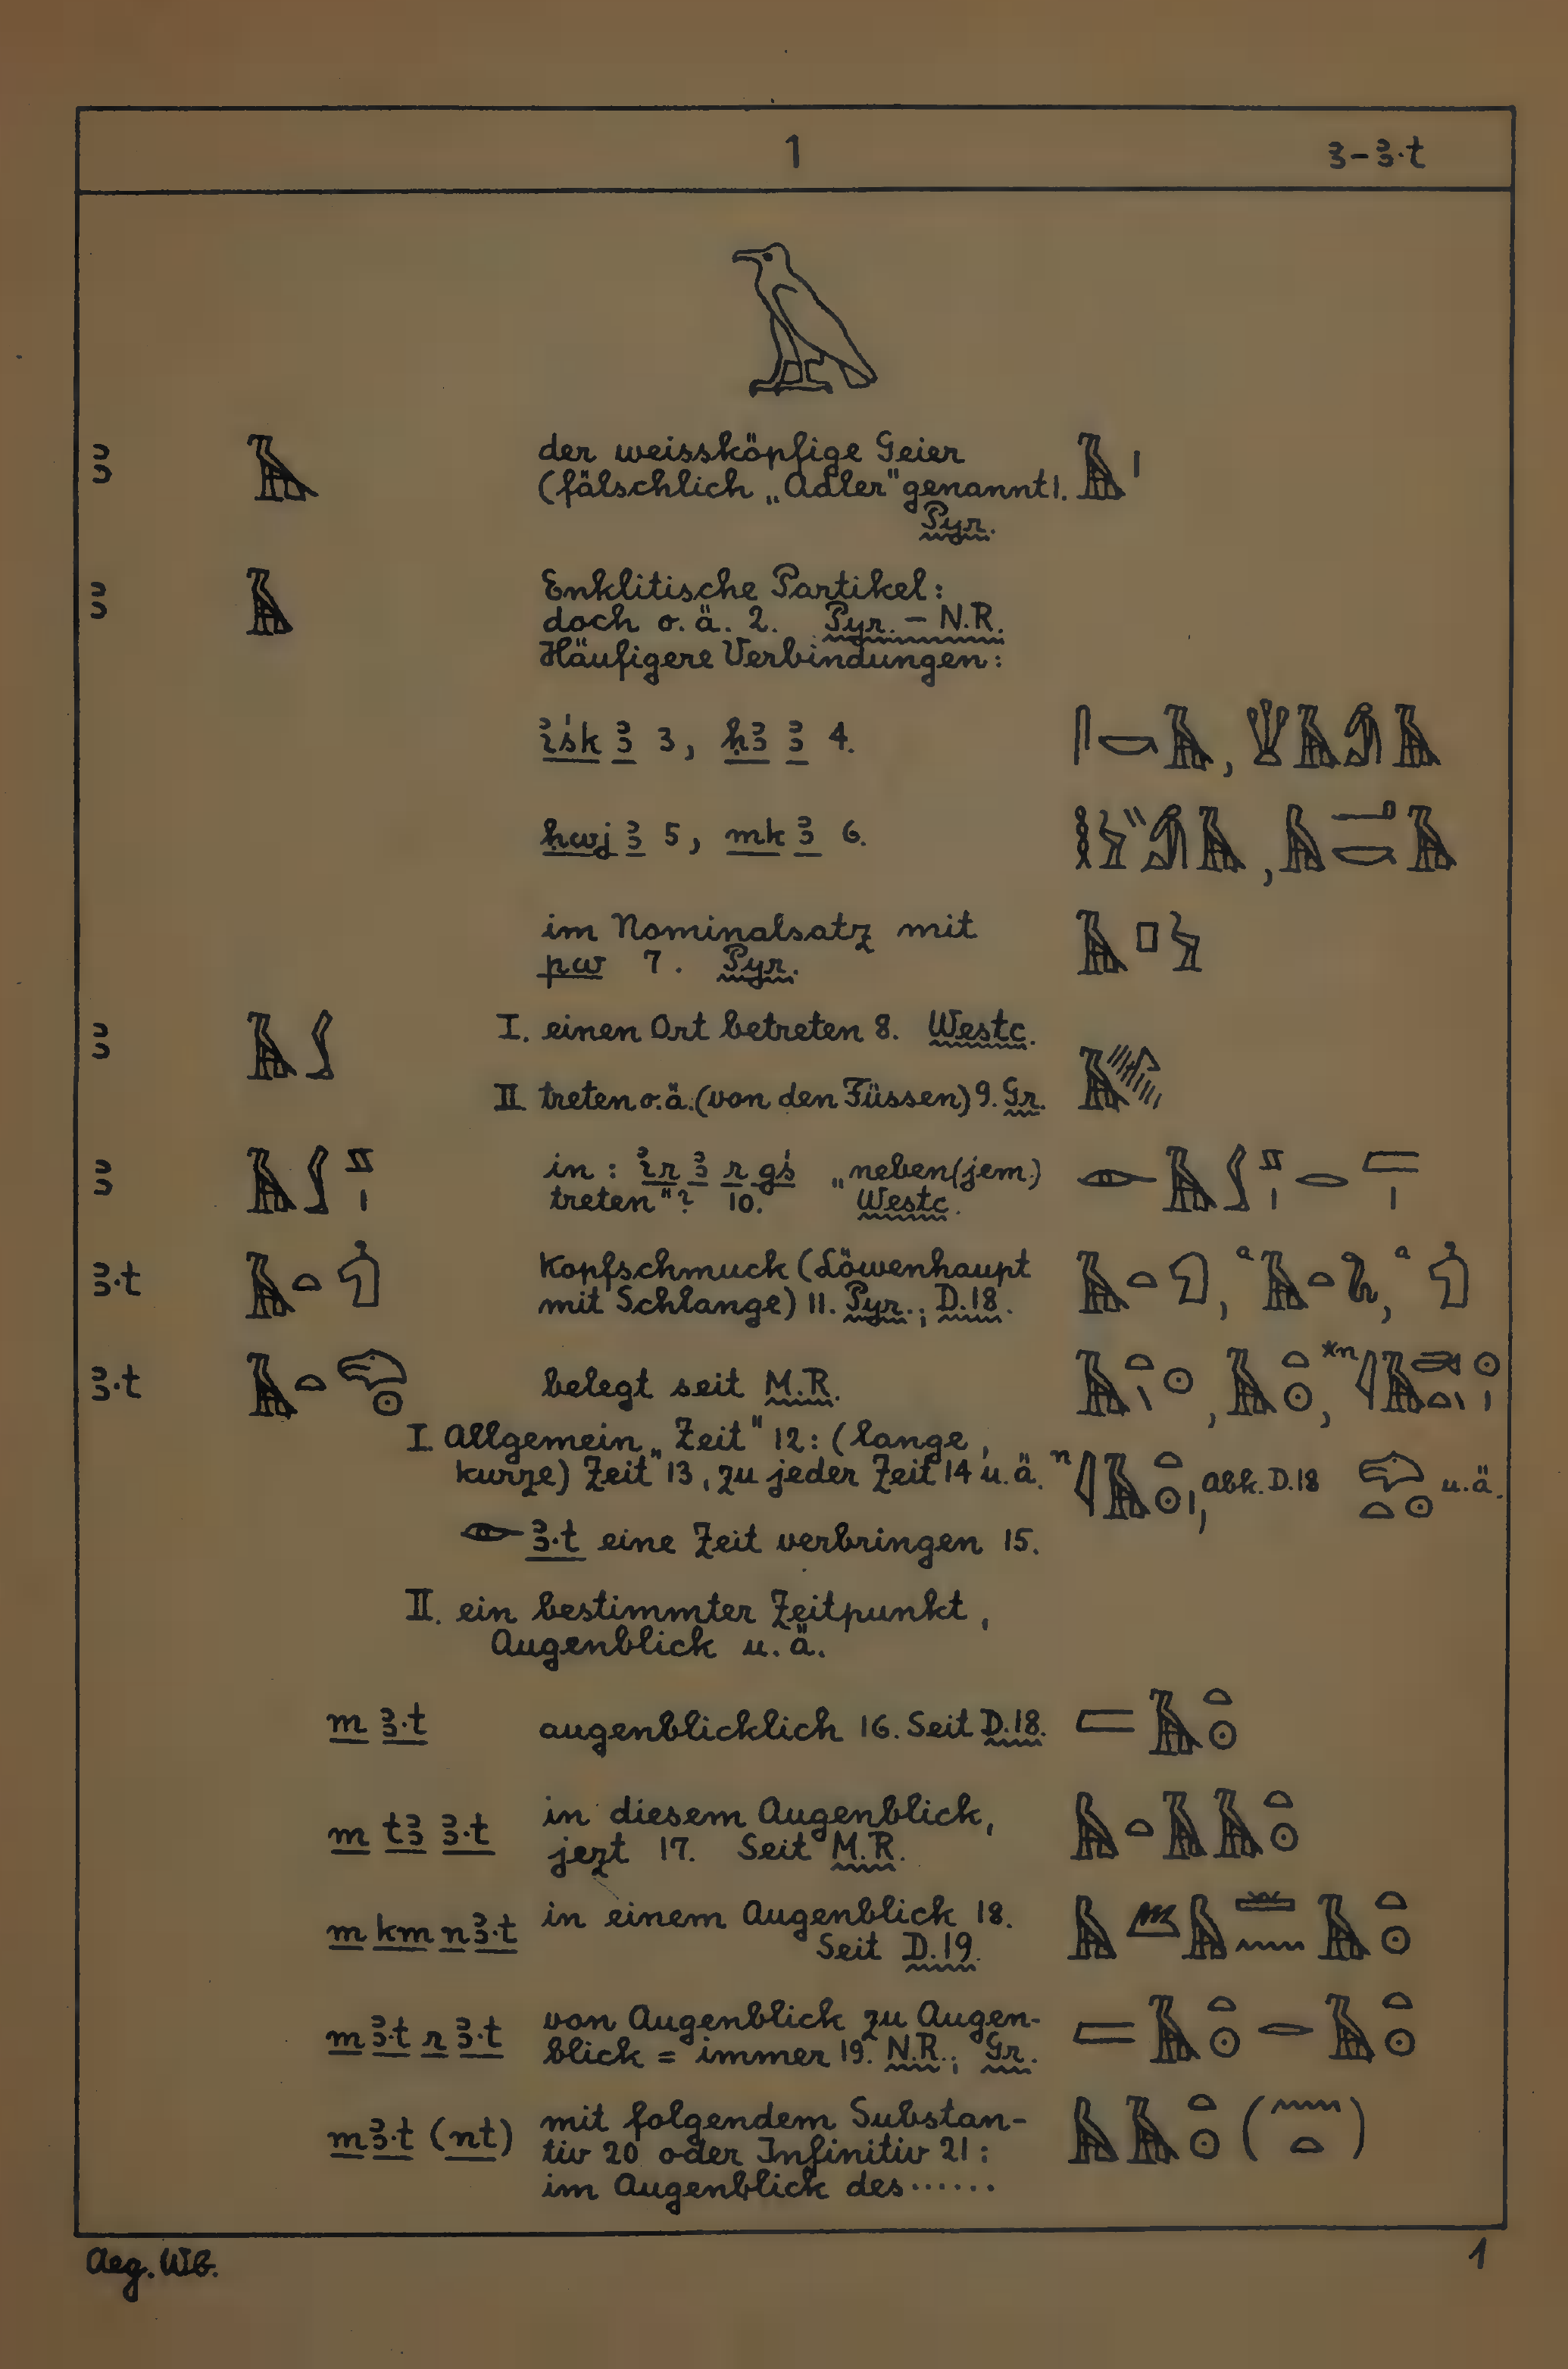 1 ꜣ – ꜣ·t
𓄿
ꜣ 𓄿 der weissköpfige Geier 𓄿𓏤
(fälschlich „Adler" genannt 1.
Pyr.
ꜣ 𓄿 Enklitische Partikel:
doch o. ä. 2. Pyr. – N.R.
Häufigere Verbindungen:
ꞽśk ꜣ 3, ḥꜣ ꜣ 4.
ḥwj ꜣ 5, mk ꜣ 6.
im Nominalsatz mit 𓄿𓊪𓅱
pw 7. Pyr.
ꜣ 𓄿𓃀 I. einen Ort betreten 8. Westc.
II treten o.ä. (von den Füssen) 9. Gr.
ꜣ in: ꞽr ꜣ r gś „neben (jem.)
treten"? 10. Westc.
ꜣ·t Kopfschmuck (Löwenhaupt
mit Schlange) 11. Pyr.; D.18.
ꜣ·t belegt seit M.R.
I. Allgemein „Zeit" 12: (lange,
kurze) Zeit 13, zu jeder Zeit 14 u. ä. Abk. D.18 u. ä.
𓁹 ꜣ·t eine Zeit verbringen 15.
II. ein bestimmter Zeitpunkt,
Augenblick u. ä.
m ꜣ·t augenblicklich 16. Seit D.18. 𓐝𓄿𓏏𓇳
m tꜣ ꜣ·t in diesem Augenblick, 𓅓𓏏𓄿𓄿𓏏𓇳
jezt 17. Seit M.R.
m km n ꜣ·t in einem Augenblick 18. 𓅓𓆎𓅓𓏠𓈖𓄿𓏏𓇳
Seit D.19.
m ꜣ·t r ꜣ·t von Augenblick zu Augen- 𓐝𓄿𓏏𓇳𓂋𓄿𓏏𓇳
blick = immer 19. N.R.; Gr.
m ꜣ·t (nt) mit folgendem Substan- 𓅓𓄿𓏏𓇳(𓈖𓏏)
tiv 20 oder Infinitiv 21:
im Augenblick des ......
Aeg. Wb. 1